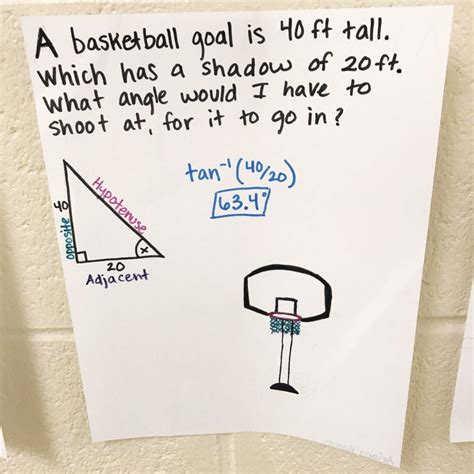 A basketball goal is 40 ft tall.
Which has a shadow of 20 ft.
What angle would I have to
shoot at, for it to go in?
tan⁻¹(40/20)
63.4°
Hypotenuse
40
opposite
x
20
Adjacent